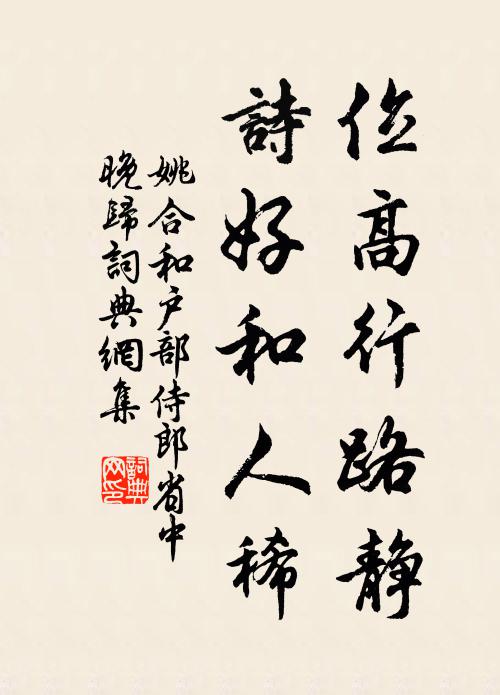 位高行路靜
詩好和人稀
姚合和戶部侍郎省中
晚歸詞典網集
詞典
网印